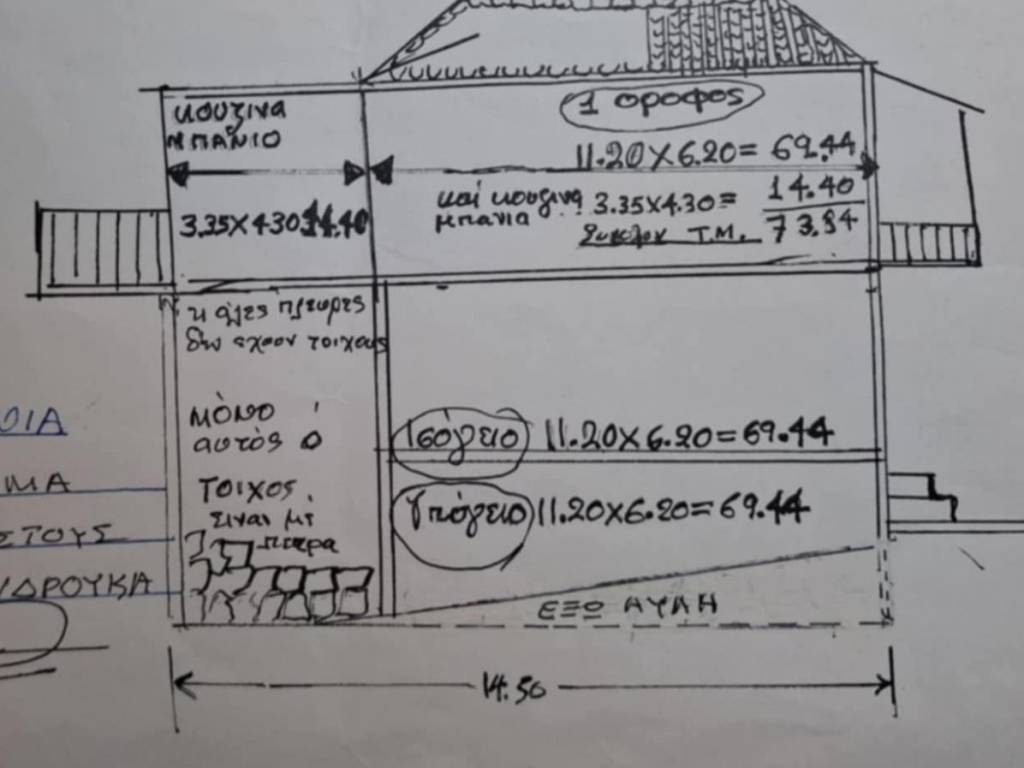 κουζινα
ΜΠΑΝΙΟ
1 οροφος
11.20 X 6.20 = 69.44
3.35 X 4.30 14.40
και κουζινα 3.35 X 4.30 = 14.40
μπανια
Συνολον Τ.Μ. 73.84
δεν εχουν τοιχους
μόνο
αυτός ο
τοιχος
ειναι με
πετρα
Ισόγειο 11.20 X 6.20 = 69.44
Υπόγειο 11.20 X 6.20 = 69.44
ΕΞΩ ΑΥΛΗ
14.50
ΟΙΑ
ΜΑ
ΣΤΟΥΣ
ΔΡΟΥΚΑ